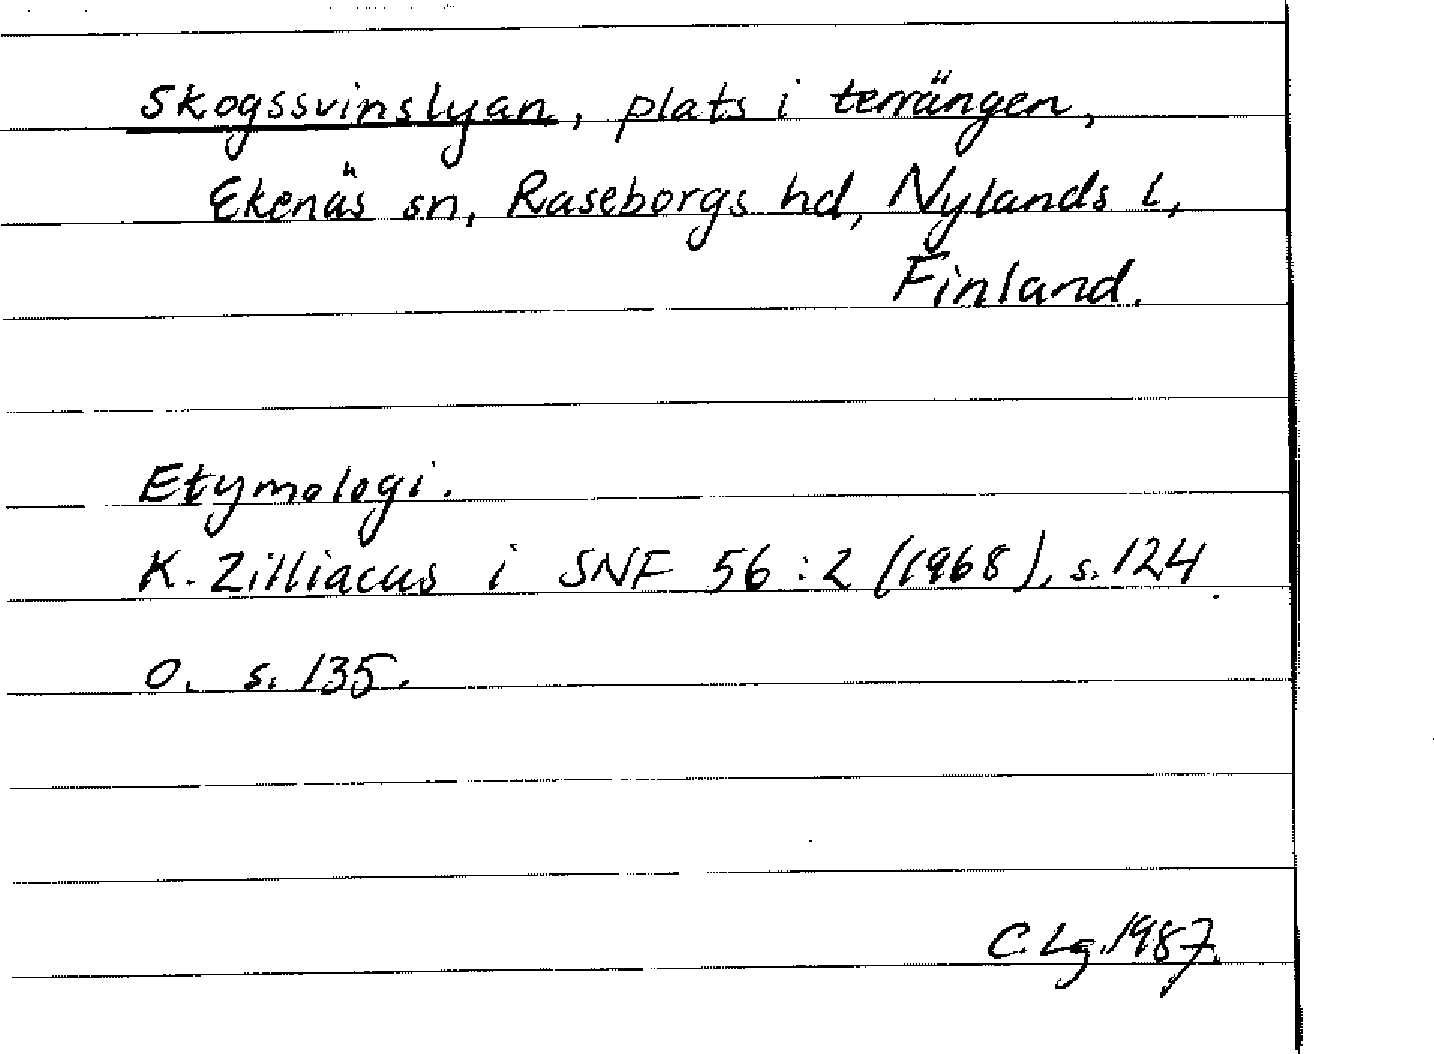 Skogssvinslyan, plats i terrängen,
Ekenäs sn, Raseborgs hd, Nylands l,
Finland.
Etymologi.
K. Zilliacus i SNF 56:2 (1968), s. 124
o. s. 135.
C. Lg. 1987.